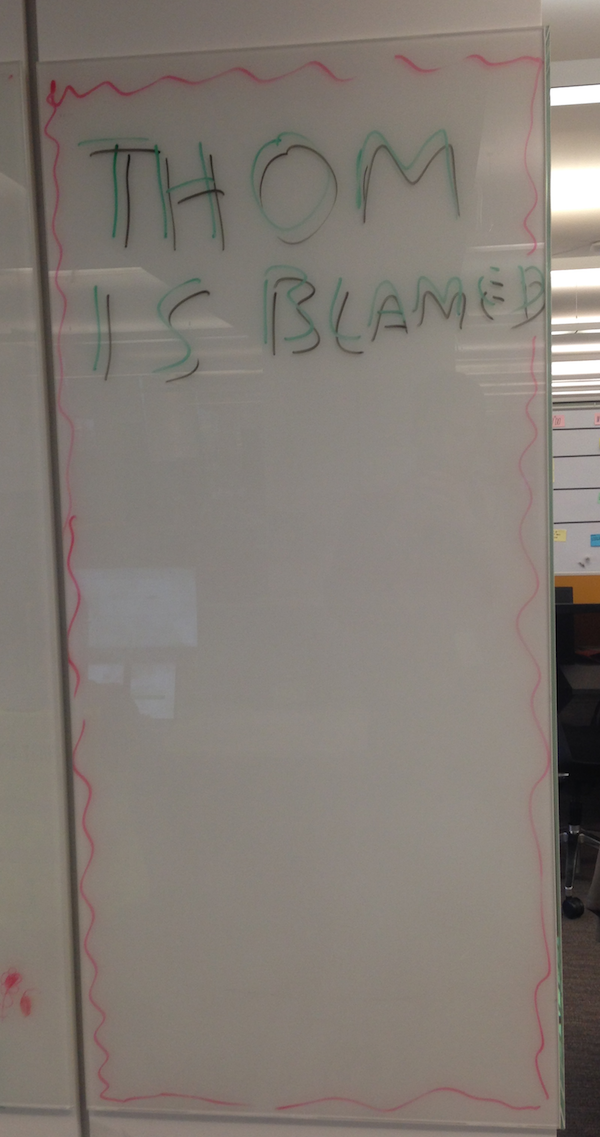 THOM
IS BLAMED